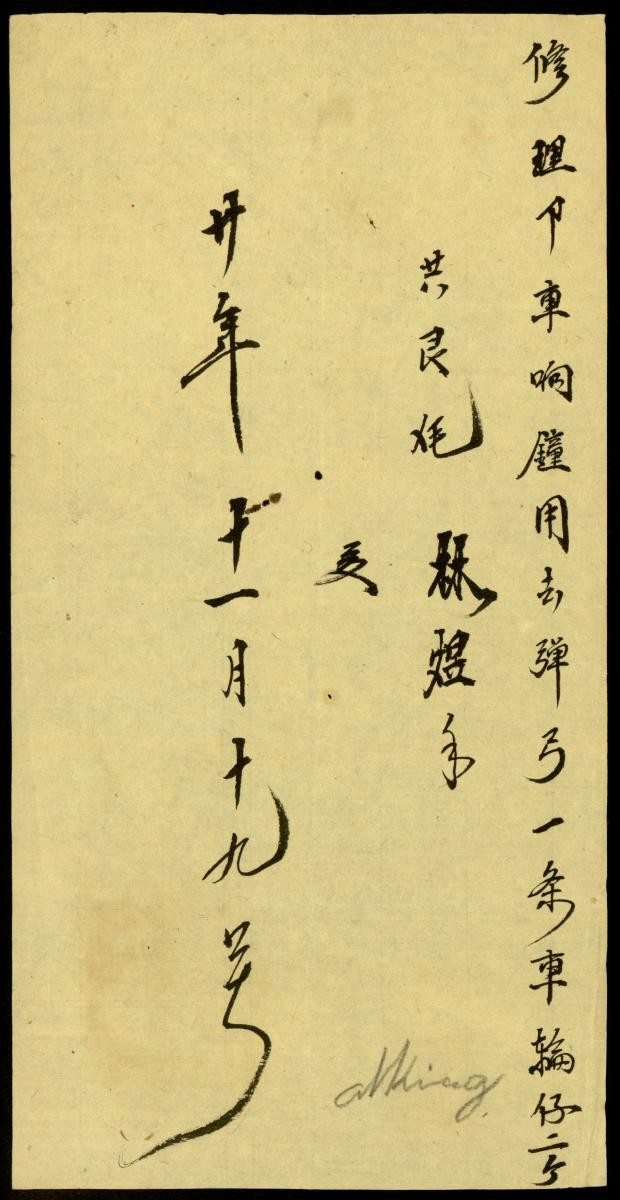 修理卩車响鐘用去弹弓一条車輪仔二个
共艮 毛
林煜手
支
廿年十一月十九号